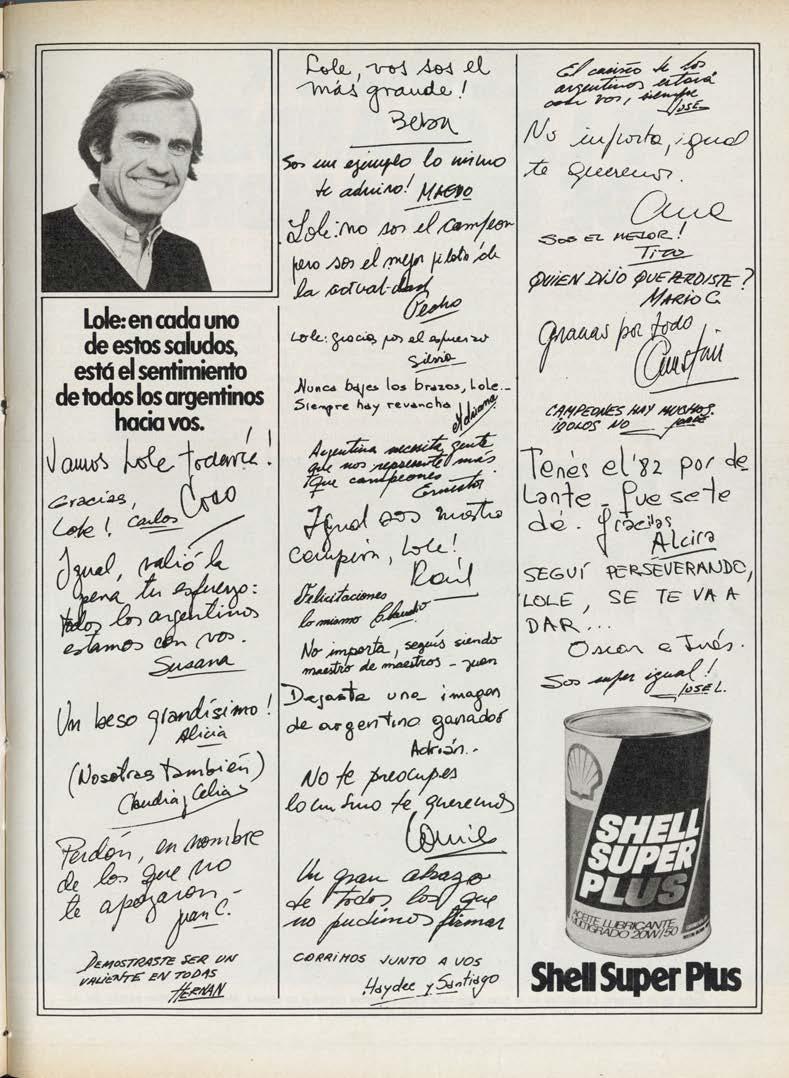 Lole: en cada uno
de estos saludos,
está el sentimiento
de todos los argentinos
hacia vos.
Vamos Lole todavía!
Coco
Gracias,
Lole! Carlos
Igual, valió la
pena tu esfuerzo:
todos los argentinos
estamos con vos.
Susana
Un beso grandísimo!
Alicia
(Nosotras también)
Claudia y Celia
Perdón, en nombre
de los que no
te apoyaron-
Juan C.
DEMOSTRASTE SER UN
VALIENTE EN TODAS
HERNAN
Lole, vos sos el
más grande!
Beba
Sos un ejemplo lo mismo
te admiro! MAGDO
Lole: no sos el campeon
pero sos el mejor piloto de
la actualidad
Pedro
Lole: gracias por el esfuerzo
Silvia
Nunca bajes los brazos, Lole-
Siempre hay revancha
Adriana
Argentina necesita gente
que nos represente más
que campeones
Ernesto
Igual sos nuestro
campeón, Lole!
Raúl
Felicitaciones
lo mismo Claudio
No importa, seguís siendo
maestro de maestros - Juan
Dejaste una imagen
de argentino ganador
Adrián..
No te preocupes
lo mismo te queremos
Un gran abazo
de todos los que
no pudimos firmar
CORRIMOS JUNTO A VOS
Haydee y Santiago
El cariño de los
argentinos estará
con vos, siempre
JOSE
No importa, igual
te queremos.
Ana
SOS EL MEJOR!
TITO
QUIEN DIJO QUE PERDISTE?
MARIO C.
Gracias por todo
CAMPEONES HAY MUCHOS.
IDOLOS NO JORGE
Tenés el '82 por de
lante - Que se te
dé. Gracias
Alcira
SEGUÍ PERSEVERANDO,
LOLE, SE TE VA A
DAR...
Oscar e Inés.
Sos super igual!
JOSE L.
SHELL
SUPER
PLUS
ACEITE LUBRICANTE
MULTIGRADO 20W/50
Shell Super Plus